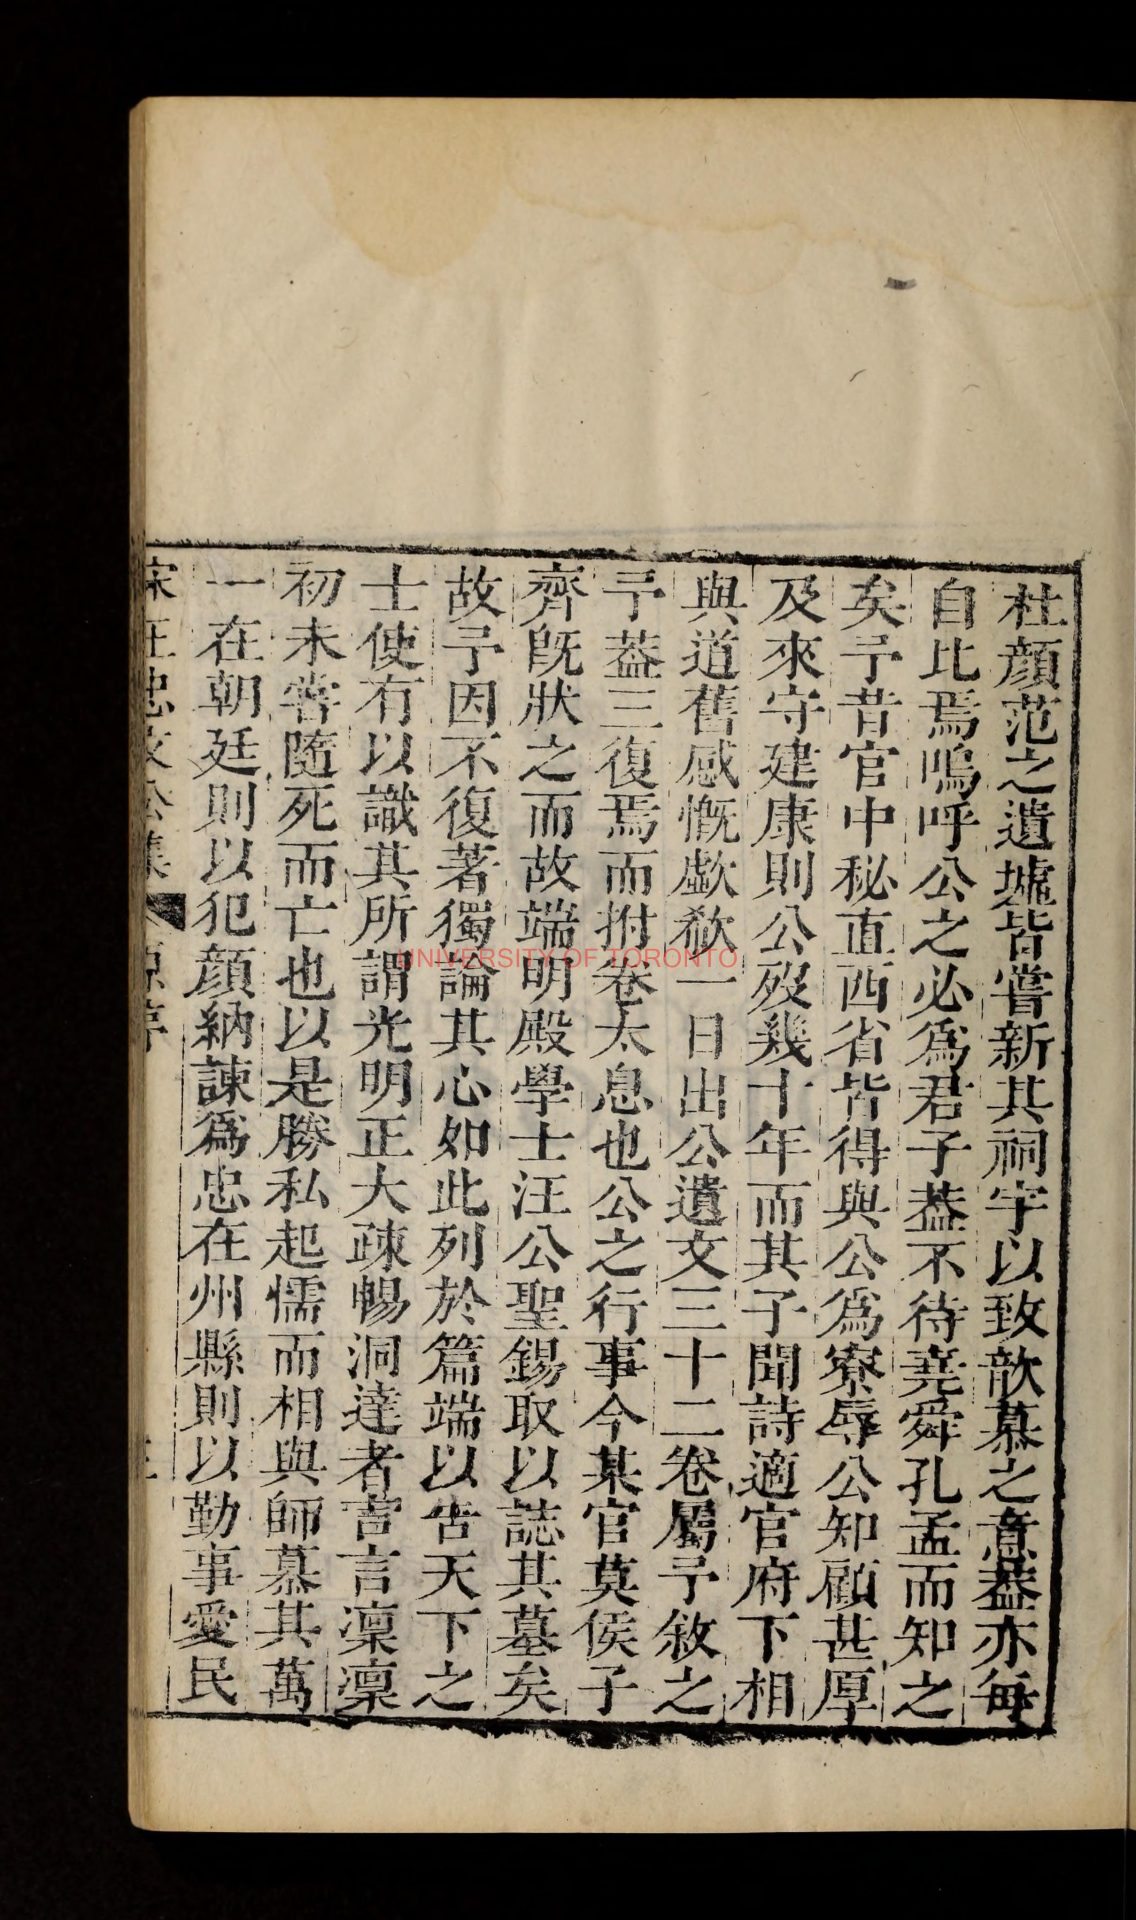 杜顔范之遺墟皆嘗新其祠宇以致歆慕之意葢亦每
自比焉嗚呼公之必爲君子葢不待堯舜孔孟而知之
矣予昔官中秘直西省皆得與公爲寮辱公知顧甚厚
及來守建康則公歿幾十年而其子聞詩適官府下相
與道舊感慨歔欷一日出公遺文三十二卷屬予敘之
予葢三復焉而拊卷太息也公之行事今某官莫侯子
齊旣狀之而故端明殿學士汪公聖錫取以誌其墓矣
故予因不復著獨論其心如此列於篇端以告天下之
士使有以識其所謂光明正大疎暢洞達者言言凜凜
初未嘗隨死而亡也以是勝私起懦而相與師慕其萬
一在朝廷則以犯顔納諫爲忠在州縣則以勤事愛民
UNIVERSITY OF TORONTO